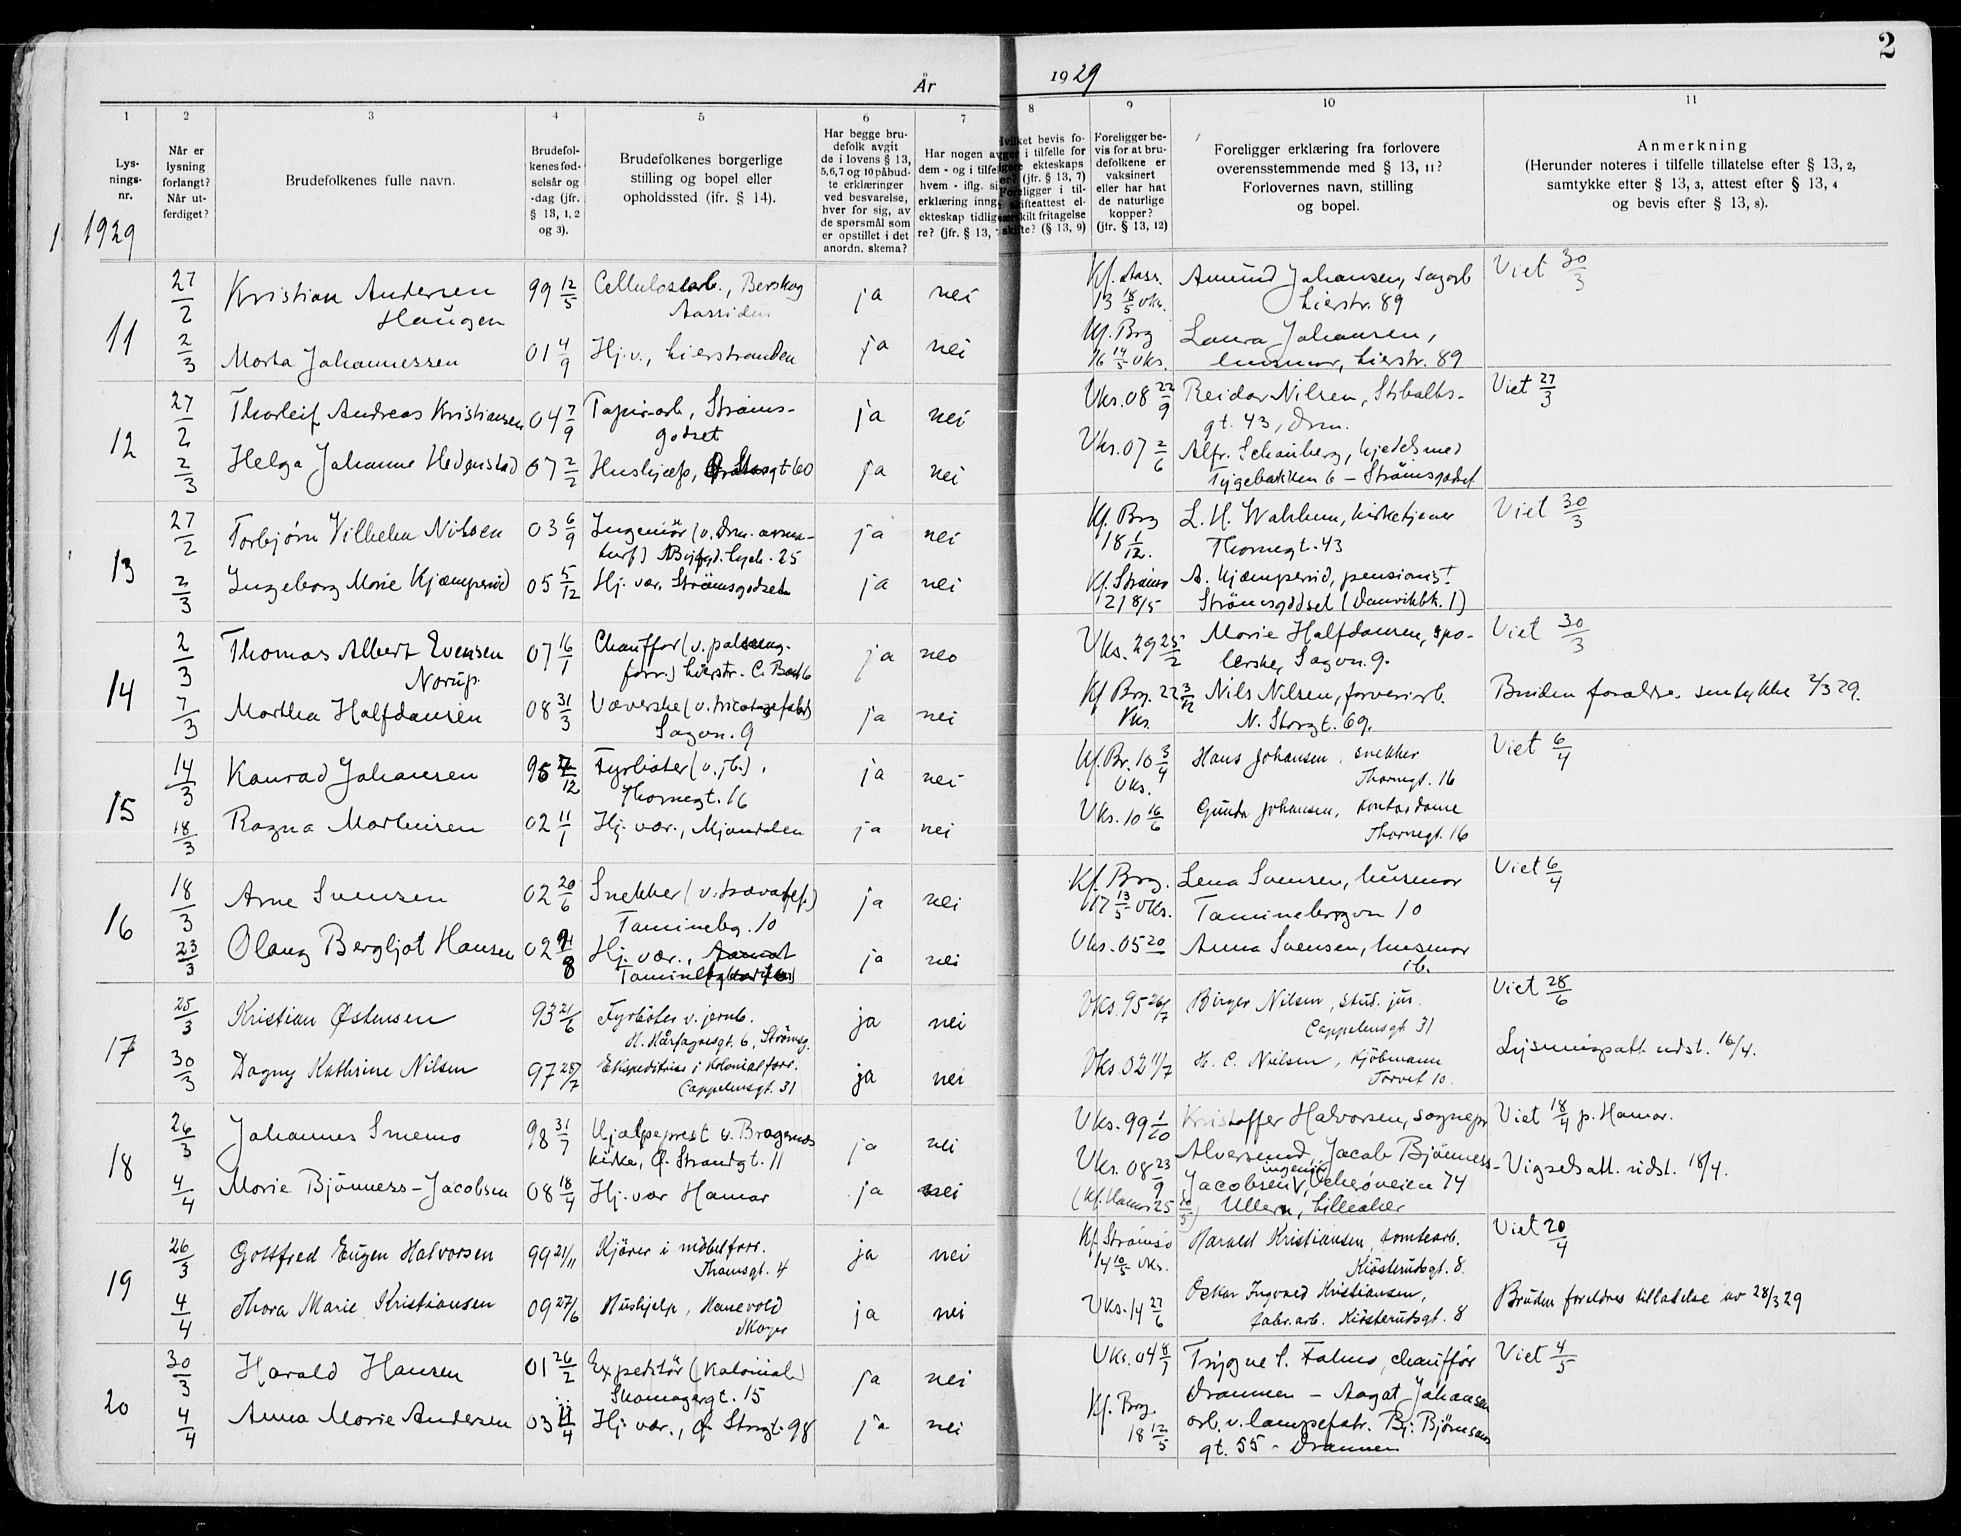 2
År 1929
1 2 3 4 5 6 7 8 9 10 11
Lys-
nings-
nr.
Når er
lysning
forlangt?
Når ut-
ferdiget?
Brudefolkenes fulle navn.
Brudefol-
kenes fød-
selsår og
-dag (jfr.
§ 13, 1, 2
og 3).
Brudefolkenes borgerlige
stilling og bopel eller
opholdssted (jfr. § 14).
Har begge bru-
defolk avgit
de i lovens § 13,
5, 6, 7 og 10 påbud-
te erklæringer
ved besvarelse,
hver for sig, av
de spørsmål som
er opstillet i det
anordn. skema?
Har nogen av
dem - og i tilfelle
hvem - iflg. si
erklæring inng.
ekteskap tidlige-
re? (jfr. § 13,
Foreligger be-
vis for at bru-
defolkene er
vaksinert
eller har hat
de naturlige
kopper?
(jfr. § 13, 12)
Foreligger erklæring fra forlovere
overensstemmende med § 13, 11?
Forlovernes navn, stilling
og bopel.
Anmerkning
(Herunder noteres i tilfelle tillatelse efter § 13, 2,
samtykke efter § 13, 3, attest efter § 13, 4
og bevis efter § 13, 8).
1. 1929
11
27/2 Kristian Andersen 99 12/5 Cellulosearb., Berskog ja nei Kf. Aass. Amund Johansen, sagarb Viet 30/3
Haugen Aassiden 13 18/5 vks. Lierstr. 89
2/3 Marta Johannessen 01 4/9 Hj.v., Lierstranden ja nei Kf. Brg Laura Johansen,
16 14/5 vks. husmor, Lierstr. 89
12
27/2 Thorleif Andreas Kristiansen 04 7/9 Papirarb, Strøms- ja nei Vks. 08 22/9 Reidar Nilsen, Stibolts- Viet 27/3
godset gt. 43, Drm.
2/3 Helga Johanne Hedenstad 07 2/2 Hushjælp, gt 60 ja nei Vks. 07 2/6 Alfr. Schauberg, kjedelsmed
Tygebakken 6 – Strømsgodset
13
27/2 Torbjørn Vilhelm Nilsen 03 6/9 Ingeniör (v. Drm. Kf. Brg L. H. Wahlum, kirketjener Viet 30/3
25 ja nei 18 1/12. Thornegt. 43
2/3 Ingeborg Marie Kjæmperud 05 5/12 Hj. vær. Strömsgodset ja nei Kf. Strømsø A. Kjæmperud, pensionist
21 8/5 Strömsgodset (Danvikbk. 1)
14
2/3 Thomas Albert Evensen 07 16/1 Chauffør (v. ja neo Vks. 29 25/2 Marie Halfdansen, spo- Viet 30/3
Norup forr.) Lierstr. lerske, Sagvn. 9.
7/3 Martha Halfdansen 08 31/3 Væverske (v. tricotagefabr) ja nei Kf Brg. 22 3/12 Nils Nilsen, farveriarb. Brudens forældres samtykke 2/3 29.
Sagvn. 9 Vks. N. Storgt. 69.
15
14/3 Konrad Johansen 95 /12 Fyrbøter (v. jb.), ja nei Kf. Br. 10 3/4 Hans Johansen, snekker Viet 6/4
Thornegt. 16 Vks. Thornegt. 16
18/3 Ragna Martinsen 02 11/1 Hj. vær., Mjøndalen ja nei Vks. 10 16/6 Gunda Johansen, kontordame
Thornegt. 16
16
18/3 Arne Svensen 02 20/6 Snekker (v. ja nei Kf. Brg. Lena Svensen, husmor Viet 6/4
Tamineby. 10 17 13/5 vks. Taminebergvn 10
23/3 Olaug Bergljot Hansen 02 /8 Hj. vær., ja nei Vks. 05 20 Anna Svensen, husmor
ib.
17
25/3 Kristian Østensen 93 21/6 Fyrböter v. jernb. ja nei Vks. 95 26/7 Birger Nilsen, stud. jur. Viet 28/6
H. Hårfagresgt. 6, Strömsg. Cappelensgt 31
30/3 Dagny Kathrine Nilsen 97 28/7 Ekspeditrise i kolonialforr. ja nei Vks 02 11/7 H. C. Nielsen, kjöbmann Lysningsatt. udst. 16/4.
Cappelensgt. 31 Torvet 10.
18
26/3 Johannes Smemo 98 31/7 Hjælpeprest v. Bragernes ja nei Vks. 99 1/10 Kristoffer Halvorsen, sognepr Viet 18/4 p. Hamar.
kirke, Ø. Strandgt. 11 Alversund, Jacob Bjönness-
4/4 Marie Bjönness-Jacobsen 08 18/4 Hj. vær Hamar ja nei Vks. 08 23/9 Jacobsen, ingeniör, Vækeröveien 74 Vigselsatt. udst. 18/4.
(Kf. Hamar 25 /5) Ullern, Lilleaker
19
26/3 Gottfred Eugen Halvorsen 99 21/11 Kjörer i möbelforr. ja nei Kf. Strömsö Harald Kristiansen, tomtearb. Viet 20/4
Thamsgt. 4 14 10/5 vks. Kiösterudsgt. 8.
4/4 Thora Marie Kristiansen 09 27/6 Hushjelp, Hanevold ja nei Vks. 14 27/6 Oskar Ingvald Kristiansen, Brudens foreldres tillatelse av 28/3 29
Skoger fabr. arb. Kiösterudsgt. 8
20
30/3 Harald Hansen 01 26/2 Expeditör (kolonial) ja nei Vks. 04 8/7 Trygve S. Falmo, chauffør Viet 4/5
Skomagergt. 15 Drammen – Aagot Johansen
4/4 Anna Marie Andersen 03 11/4 Hj. vær., Ø. Storgt. 98 ja nei Kf. Brg. arb. v. lampefabr. Bj: Björnsons
18 12/5 gt. 55 – Drammen